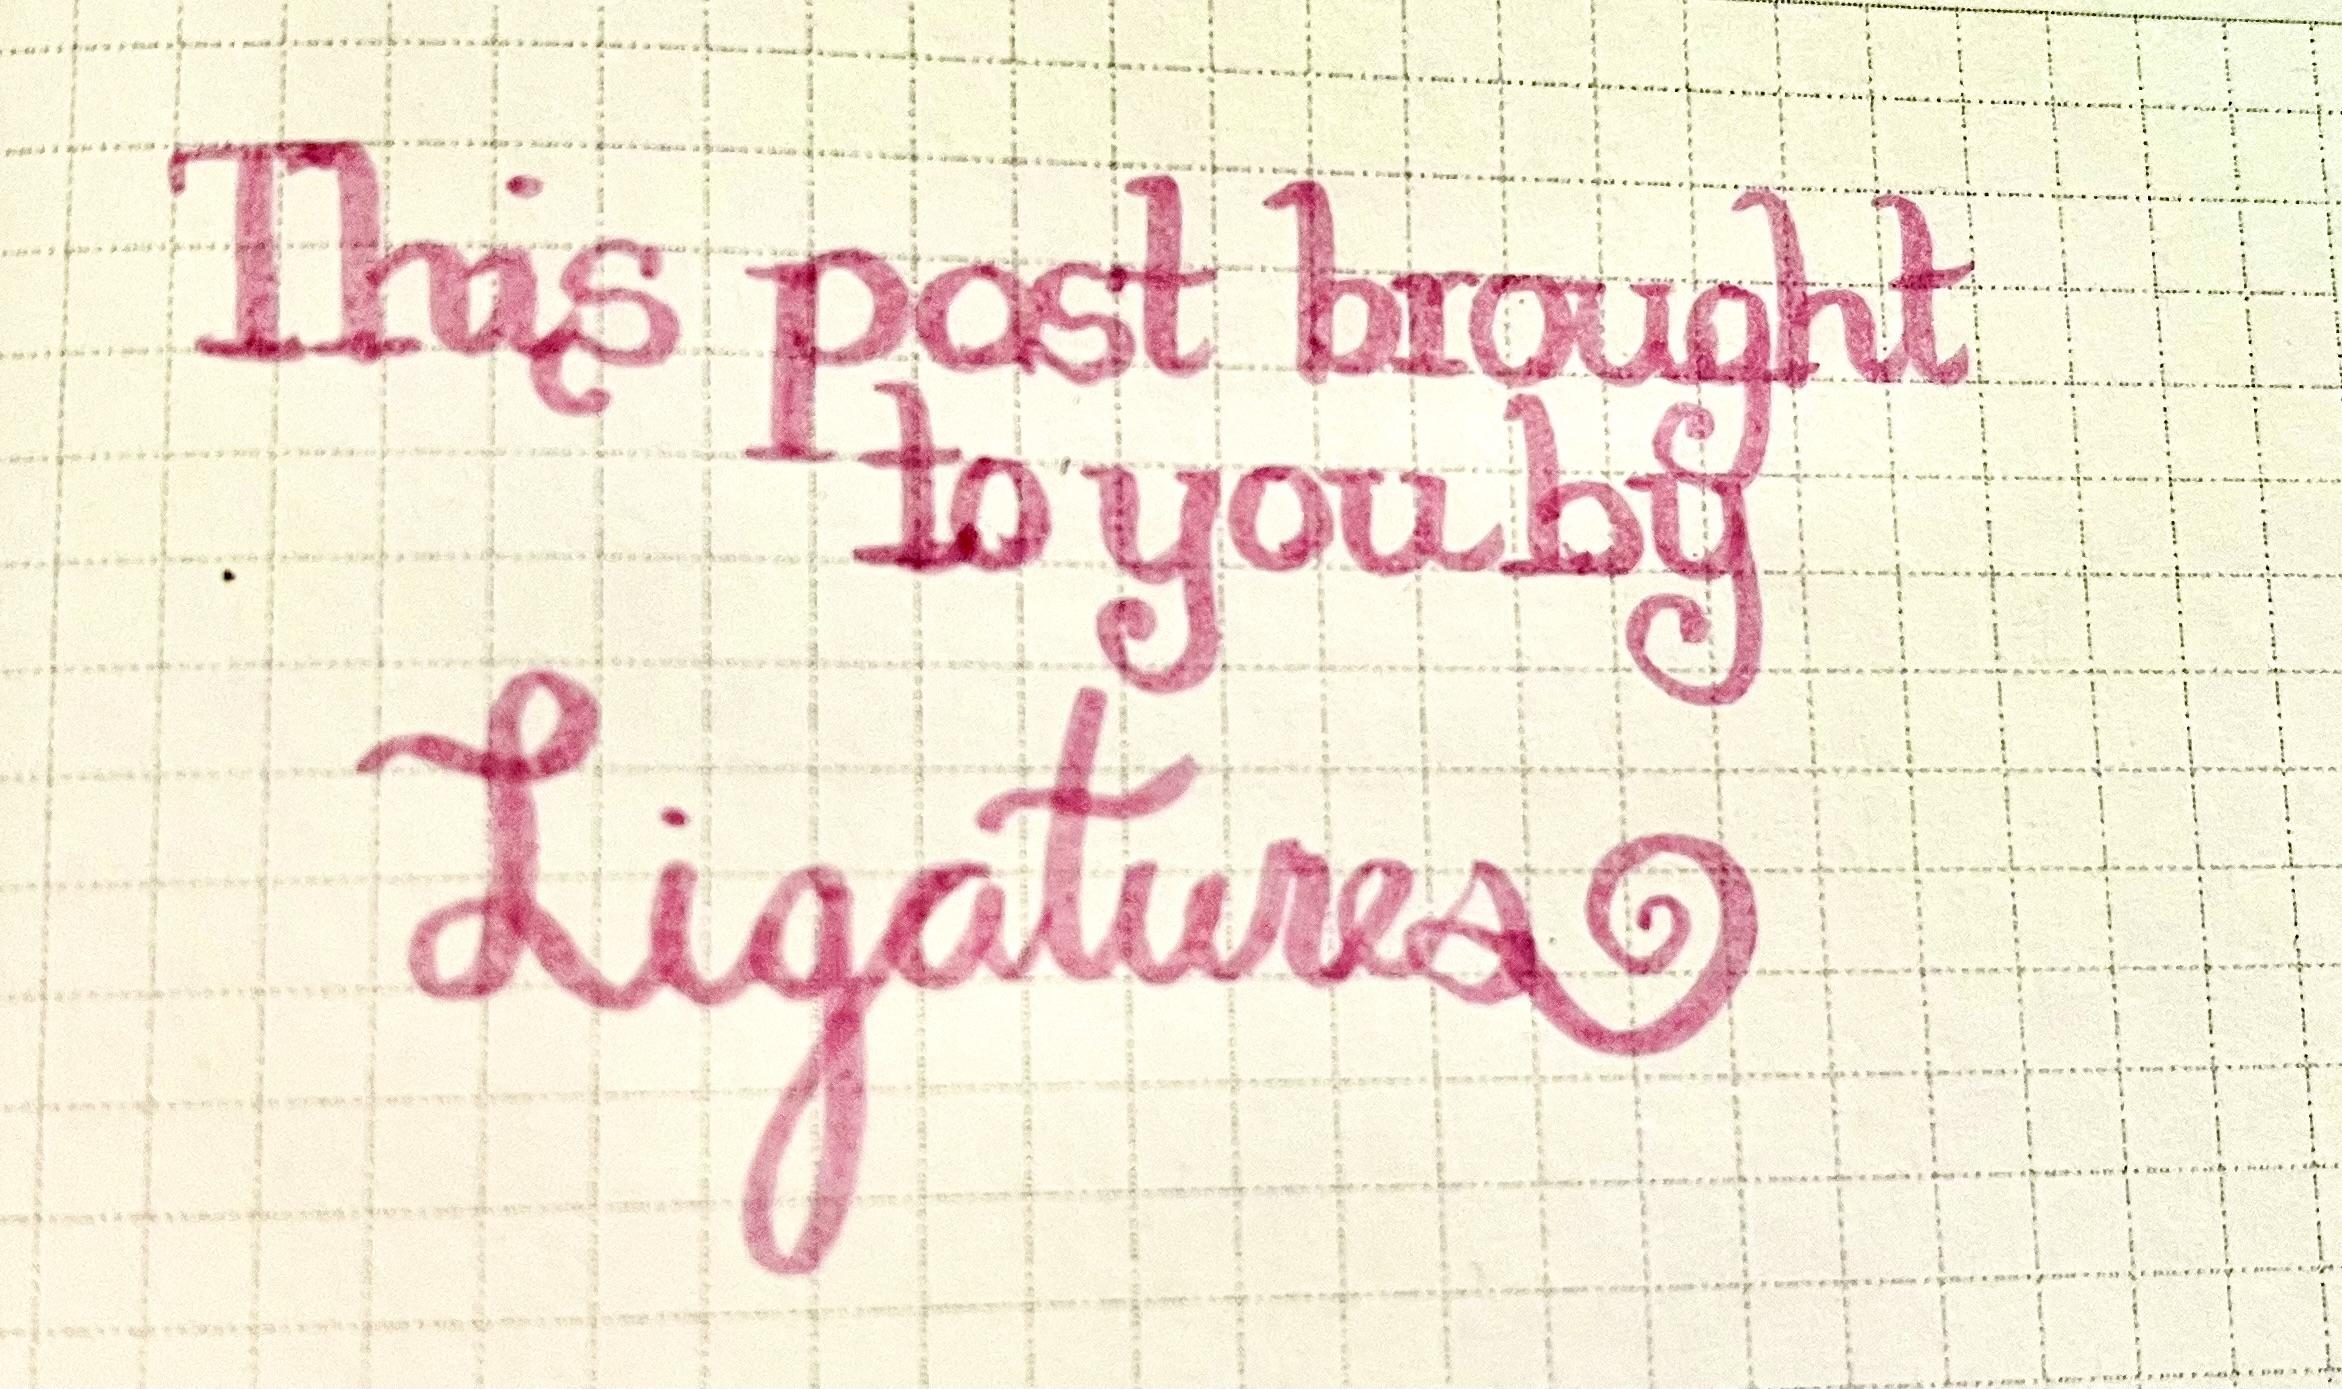 This post brought
to you by
Ligatures